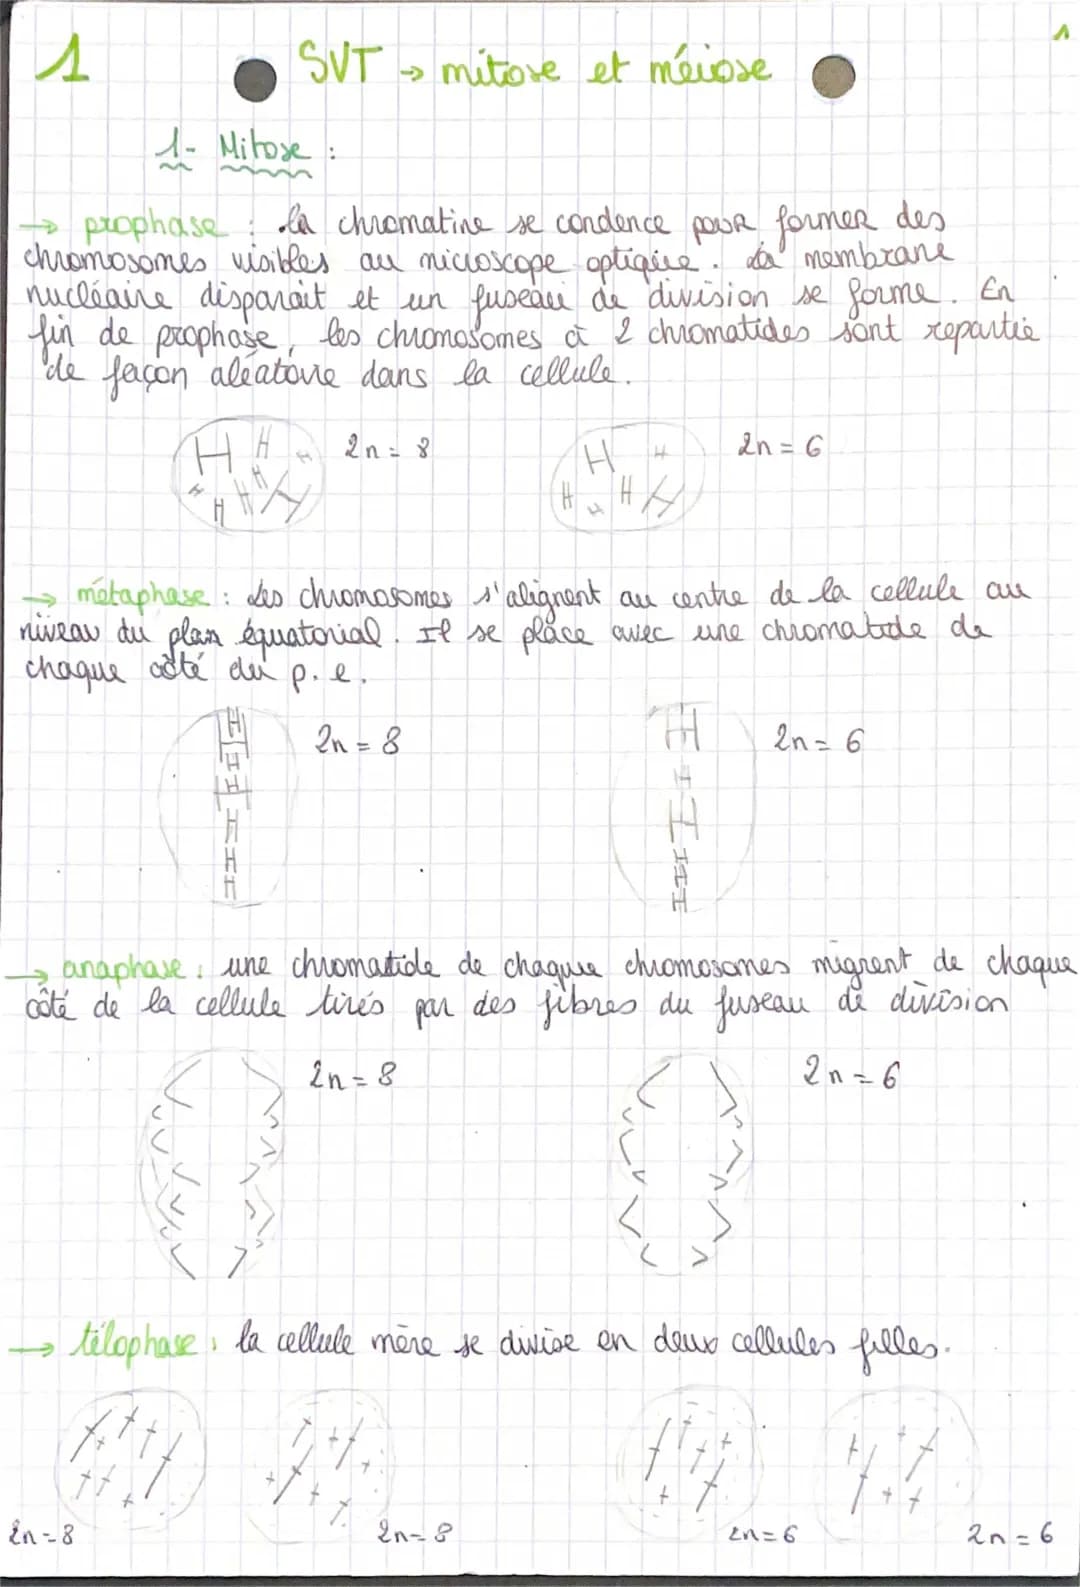 1
1
SVT → mitose et méiose
1- Mitose :
→ prophase : la chromatine se condence pour former des
chromosomes visibles au microscope optique. La membrane
nucléaire disparait et un fuseau de division se forme. En
fin de prophase, les chromosomes à 2 chromatides sont repartie
de façon aléatoire dans la cellule.
2n = 8
2n = 6
→ métaphase : Les chromosomes s'alignent au centre de la cellule au
niveau du plan équatorial. Il se place avec une chromatide de
chaque côté du p. e.
2n = 8
2n = 6
→ anaphase : une chromatide de chaque chromosomes migrent de chaque
côté de la cellule tirés par des fibres du fuseau de division
2n = 8
2n = 6
→ télophase : la cellule mère se divise en deux cellules filles.
2n = 8
2n = 8
2n = 6
2n = 6